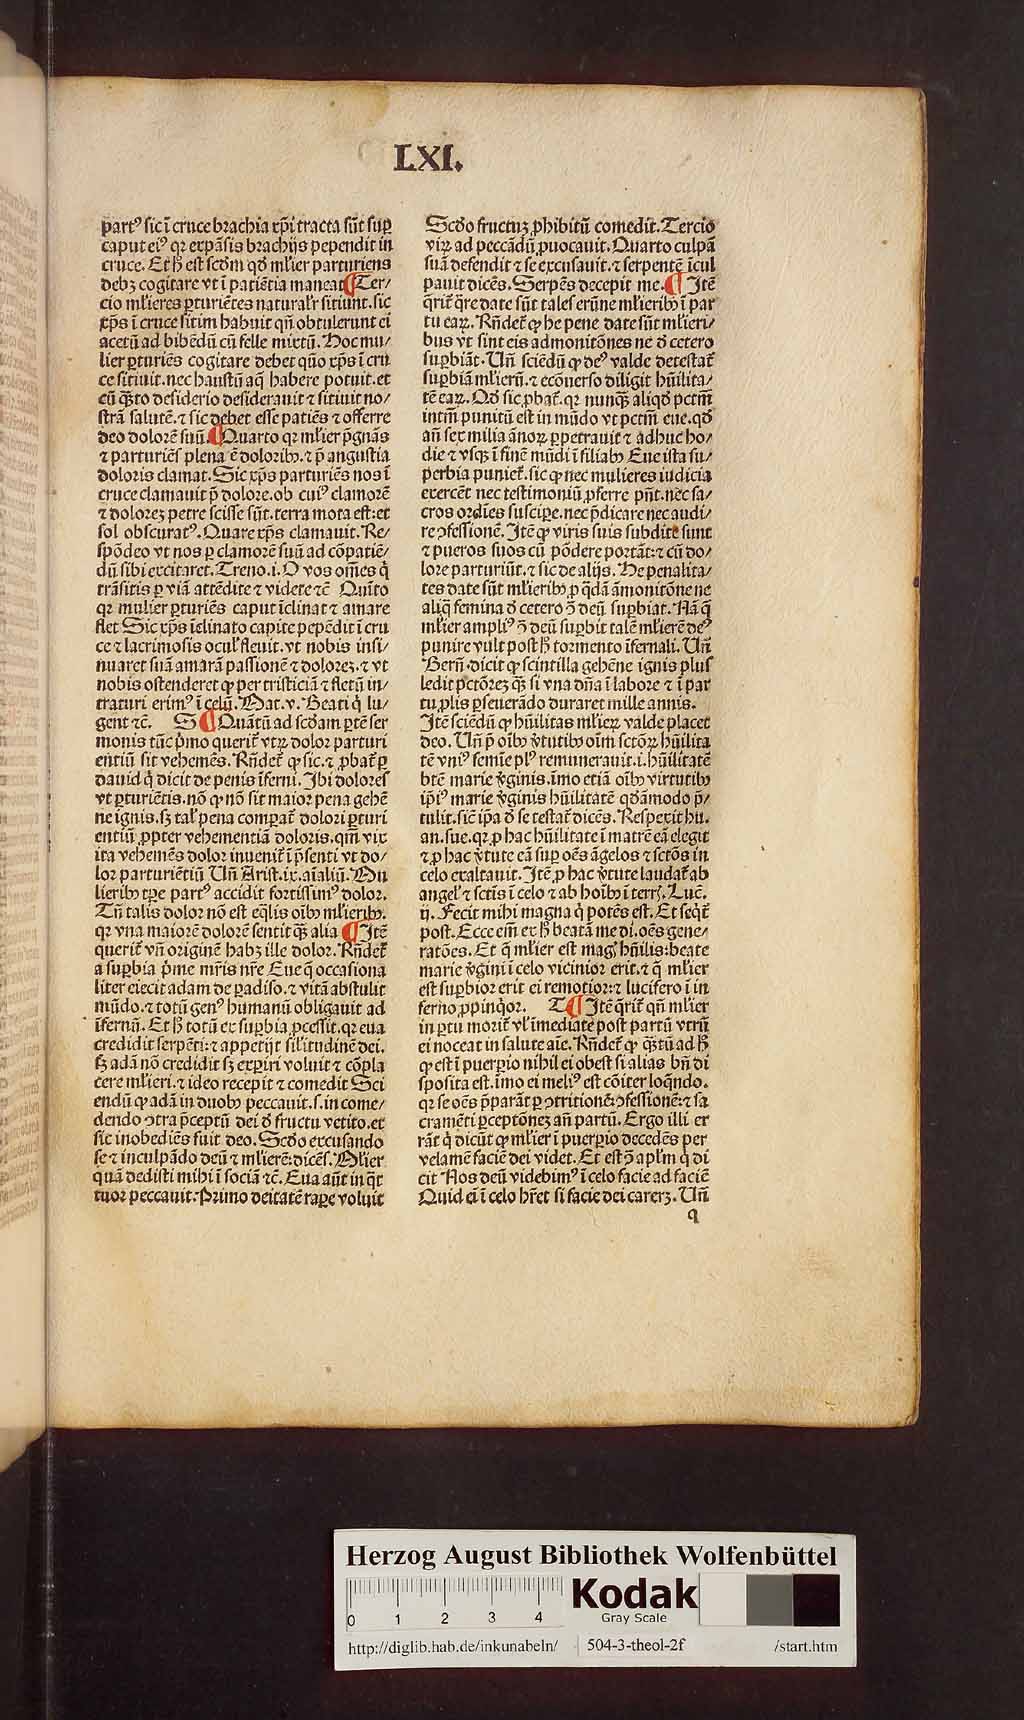 LXI.
partꝰ sic ī cruce brachia xp̄i tracta sūt suꝑ
caput eiꝰ qꝛ expāsis brachijs pependit in
cruce. Et h̄ est scdm̄ qd̄ ml'ier parturiens
debꝫ cogitare vt ī patiētia maneat ¶ Ter/
cio ml'ieres ꝑturiētes naturalr̄ sitiunt. sic
xp̄s ī cruce sitim habuit qn̄ obtulerunt ei
acetū ad bibēdū cū felle mixtū. Hoc mu/
lier ꝑturiēs cogitare debet quō xp̄s ī cru
ce sitiuit. nec haustū aq̄ habere potuit. et
cū q̄ꝫto desiderio desiderauit ⁊ sitiuit no/
strā salutē. ⁊ sic debet esse patiēs ⁊ offerre
deo dolorē suū. ¶ Quarto qꝛ ml'ier p̄gnās
⁊ parturiēs plena ē dolorib⁹. ⁊ p̄ angustia
doloris clamat. Sic xp̄s parturiēs nos ī
cruce clamauit p̄ dolore. ob cuiꝰ clamorē
⁊ dolorez petre scisse sūt. terra mota est: et
sol obscuratꝰ. Quare xp̄s clamauit. Re/
spōdeo vt nos ꝑ clamorē suū ad cōpatiē/
dū sibi excitaret. Treno. i. O vos om̄es q̄
trāsitis ꝑ viā attēdite ⁊ videte ⁊c̄ Quīto
qꝛ mulier ꝑturiēs caput īclinat ⁊ amare
flet Sic xp̄s īclinato capite pepēdit ī cru
ce ⁊ lacrimosis ocul' fleuit. vt nobis insi/
nuaret suā amarā passionē ⁊ dolorez. ⁊ vt
nobis ostenderet ꝙ per tristiciā ⁊ fletū in/
traturi erimꝰ ī celū. Mat. v. Beati q̄ lu/
gent ⁊c̄. S ¶ Quātū ad scdam ꝑtē ser
monis tūc p̄mo querit' vtꝝ dolor parturi
entiū sit vehemēs. Rn̄det' ꝙ sic. ⁊ ꝓbat' ꝑ
dauid q̄ dicit de penis īferni. Ibi dolores
vt ꝑturiētis. nō ꝙ nō sit maior pena gehē
ne ignis. sꝫ tal' pena comꝑat' dolori ꝑturi
entiū ꝓpter vehementiā doloris. qm̄ vix
ita vehemēs dolor inuenit' ī p̄senti vt do/
lor parturiētiū Vn̄ Arist. ix. aīaliū. Mu
lierib⁹ tꝑe partꝰ accidit fortissimꝰ dolor.
Tn̄ talis dolor nō est eq̄lis oīb⁹ ml'ierib⁹.
qꝛ vna maiorē dolorē sentit q̄ꝫ alia ¶ Itē
querit' vn̄ originē habꝫ ille dolor. Rn̄det'
a suꝑbia p̄me mr̄is nr̄e Eue q̄ occasiona
liter eiecit adam de ꝑadiso. ⁊ vitā abstulit
mūdo. ⁊ totū genꝰ humanū obligauit ad
īfernū. Et h̄ totū ex suꝑbia ꝓcessit. qꝛ eua
credidit serpēti: ⁊ appetijt sil'itudinē dei.
sꝫ adā nō credidit sꝫ exꝑiri voluit ⁊ cōpla
cere ml'ieri. ⁊ ideo recepit ⁊ comedit Sci
endū ꝙ adā in duob⁹ peccauit. s. in come/
dendo ꝯtra p̄ceptū dei d̄ fructu vetito. et
sic inobediēs fuit deo. Scdo excusando
se ⁊ inculpādo deū ⁊ ml'ierē: dicēs. Ml'ier
quā dedisti mihi ī sociā ⁊c̄. Eua aūt in q̄t
tuor peccauit. Primo deitatē raꝑe voluit
Scdo fructuꝫ ꝓhibitū comedit. Tercio
viꝝ ad peccādū ꝓuocauit. Quarto culpā
suā defendit ⁊ se excusauit. ⁊ serpentē īcul
pauit dicēs. Serpēs decepit me. ¶ Itē
q̄rit' q̄re date sūt tales erūne ml'ierib⁹ ī par
tu eaꝝ. Rn̄det' ꝙ he pene date sūt ml'ieri/
bus vt sint eis admonitōnes ne d̄ cetero
suꝑbiāt. Vn̄ sciēdū ꝙ deꝰ valde detestat'
suꝑbiā ml'ierū. ⁊ econuerso diligit hūilita/
tē eaꝝ. Qd̄ sic ꝓbat'. qꝛ nunq̄ꝫ aliqd̄ pctm̄
intm̄ punitū est in mūdo vt pctm̄ eue. qd̄
an̄ sex milia ānoꝝ ꝑpetrauit ⁊ adhuc ho/
die ⁊ vsqꝫ ī finē mūdi ī filiab⁹ Eue ista su/
perbia puniet'. sic ꝙ nec mulieres iudicia
exercēt nec testimoniū ꝓferre pn̄t. nec sa/
cros ordīes susciꝑe. nec p̄dicare nec audi/
re ꝯfessionē. Itē ꝙ viris suis subdite sunt
⁊ pueros suos cū pōdere portāt: ⁊ cū do/
lore parturiūt. ⁊ sic de alijs. He penalita/
tes date sūt ml'ierib⁹ ꝓ q̄dā āmonitōne ne
aliq̄ femina d̄ cetero ꝯ̄ deū suꝑbiat. Nā q̄
ml'ier ampliꝰ ꝯ̄ deū suꝑbit talē ml'ierē deꝰ
punire vult post h̄ tormento īfernali. Vn̄
Bern̄. dicit ꝙ scintilla gehēne ignis plus
ledit pctōrez q̄ꝫ si vna dn̄a ī labore ⁊ ī par
tu ꝓlis ꝑseuerādo duraret mille annis.
Itē sciēdū ꝙ hūilitas ml'ieꝝ valde placet
deo. Vn̄ p̄ oīb⁹ v̄tutib⁹ oīm sctōꝝ hūilita
tē vniꝰ semīe pl' remunerauit. i. hūilitatē
btē marie v̄ginis. īmo etiā oīb⁹ virtutib⁹
ip̄iꝰ marie v̄ginis hūilitatē qdāmodo p̄/
tulit. sic̄ ip̄a d̄ se testat' dicēs. Respexit hu.
an. sue. qꝛ ꝓ hac hūilitate ī matrē eā elegit
⁊ ꝓ hac v̄tute eā suꝑ oēs āgelos ⁊ sctōs in
celo exaltauit. Itē ꝓ hac v̄tute laudat' ab
angel' ⁊ sctīs ī celo ⁊ ab hoīb⁹ ī terꝭ. Luc̄.
ij. Fecit mihi magna q̄ potēs est. Et seqt'
post. Ecce em̄ ex h̄ beatā me di. oēs gene/
ratōes. Et q̄ ml'ier est mag' hūilis: beate
marie v̄gini ī celo vicinior erit. ⁊ q̄ ml'ier
est suꝑbior erit ei remotior: ⁊ lucifero ī in
ferno ꝓpinq̄or. T ¶ Itē q̄rit' qn̄ ml'ier
in ꝑtu morit' vl' īmediate post partū vtrū
ei noceat in salute aīe. Rn̄det' ꝙ q̄ꝫtū ad h̄
ꝙ est ī puerꝑio nihil ei obest si alias bn̄ di
sposita est. īmo ei meliꝰ est cōiter loq̄ndo.
qꝛ se oēs p̄parāt ꝑ ꝯtritionē: ꝯfessionē: ⁊ sa
cramēti ꝑceptōnez an̄ partū. Ergo illi er
rāt q̄ dicūt ꝙ ml'ier ī puerꝑio decedēs per
velamē faciē dei videt. Et est ꝯ̄ apl'm q̄ di
cit Nos deū videbimꝰ ī celo facie ad faciē
Quid ei ī celo hr̄et si facie dei carerꝫ. Vn̄
q
Herzog August Bibliothek Wolfenbüttel
0 1 2 3 4
Kodak
Gray Scale
http://diglib.hab.de/inkunabeln/ 504-3-theol-2f /start.htm